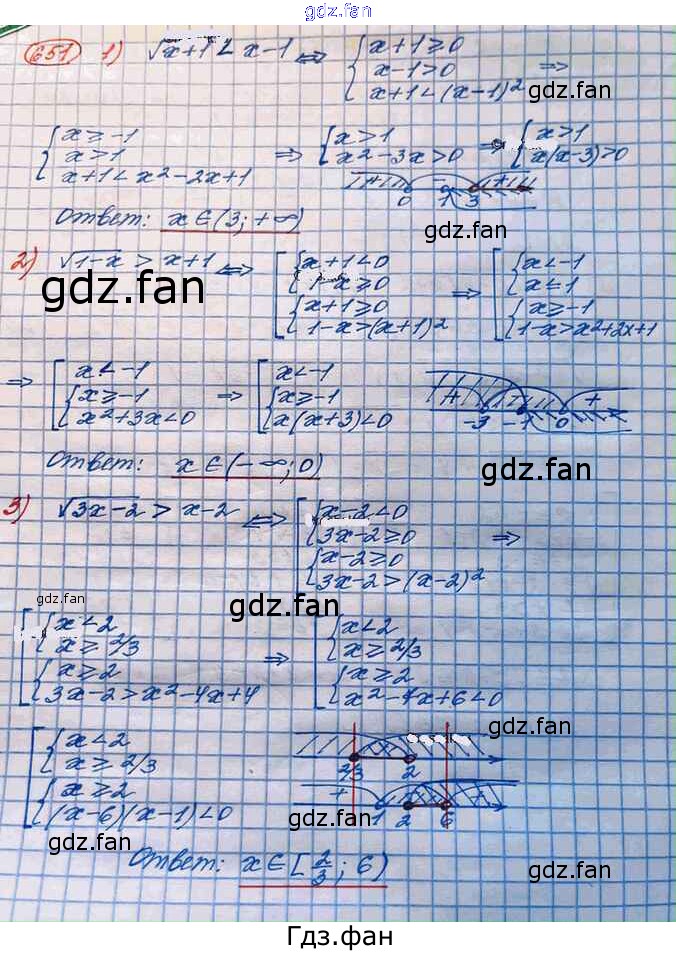 gdz.fan
651 1) √x+1 < x-1 ⇔ { x+1≥0
x-1>0 ⇒
x+1<(x-1)²
gdz.fan
{ x≥-1
x>1 ⇒
x+1<x²-2x+1
{ x>1
x²-3x>0 ⇒
{ x>1
x(x-3)>0
+ +
0 1 3
Ответ: x∈(3;+∞)
gdz.fan
2) √1-x > x+1 ⇔ [ { x+1<0
1-x≥0
{ x+1≥0
1-x>(x+1)²
⇒ [ { x<-1
x<1
{ x≥-1
1-x>x²+2x+1
gdz.fan
⇒ [ x<-1
{ x≥-1
x²+3x<0
⇒ [ x<-1
{ x≥-1
x(x+3)<0
+ +
-3 -1 0
Ответ: x∈(-∞;0)
gdz.fan
3) √3x-2 > x-2 ⇔ [ { x-2<0
3x-2≥0 ⇒
{ x-2≥0
3x-2>(x-2)²
gdz.fan
gdz.fan
[ { x<2
x≥2/3
{ x≥2
3x-2>x²-4x+4
⇒ [ { x<2
x≥2/3
{ x≥2
x²-7x+6<0
gdz.fan
[ { x<2
x≥2/3
{ x≥2
(x-6)(x-1)<0
2/3 2
+
1 2 6
gdz.fan
gdz.fan
Ответ: x∈[2/3; 6)
gdz.fan
Гдз.фан